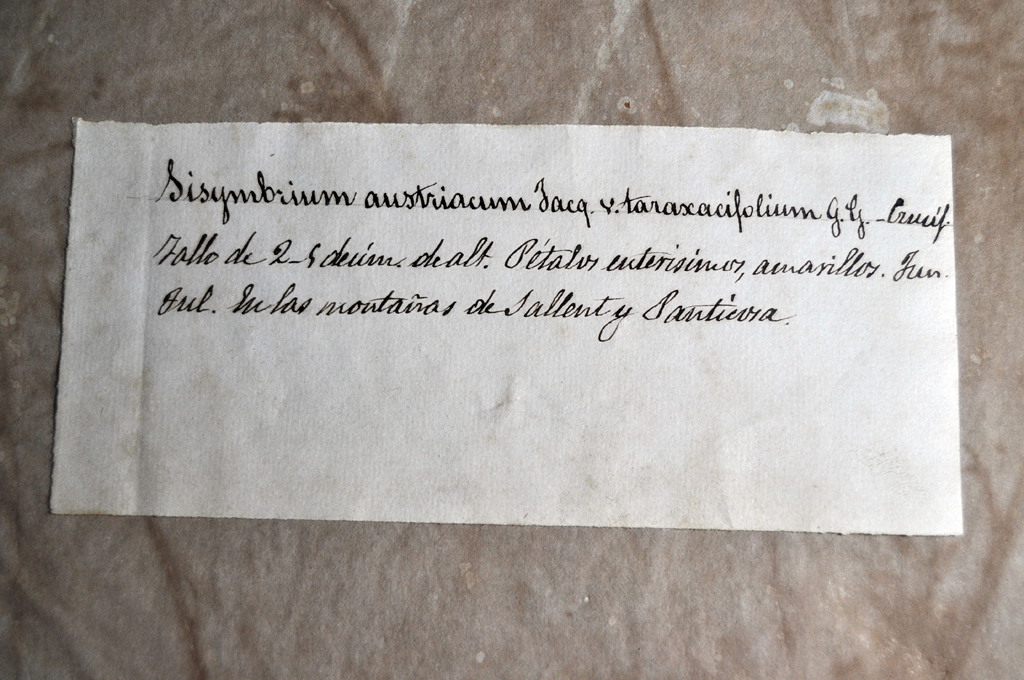 Sisymbrium austriacum Jacq. v. taraxacifolium G. G. - Crucif.
Tallo de 2-5 decím. de alt. Pétalos enterisimos, amarillos. Jun.
Jul. En las montañas de Sallent y Panticosa.